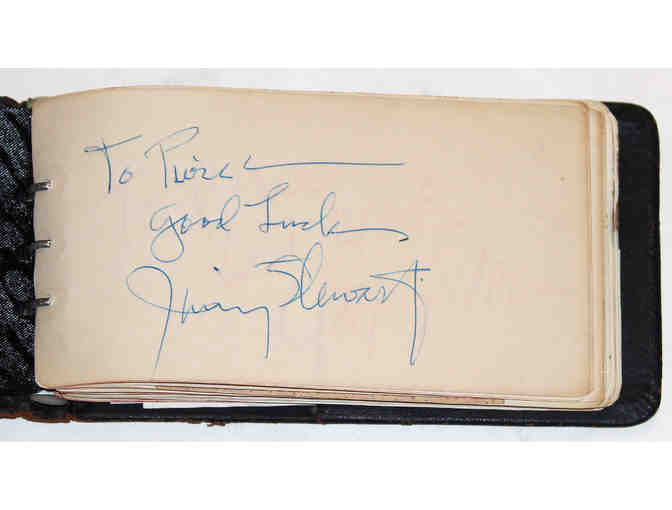 To Pierce
Good Luck
Jimmy Stewart